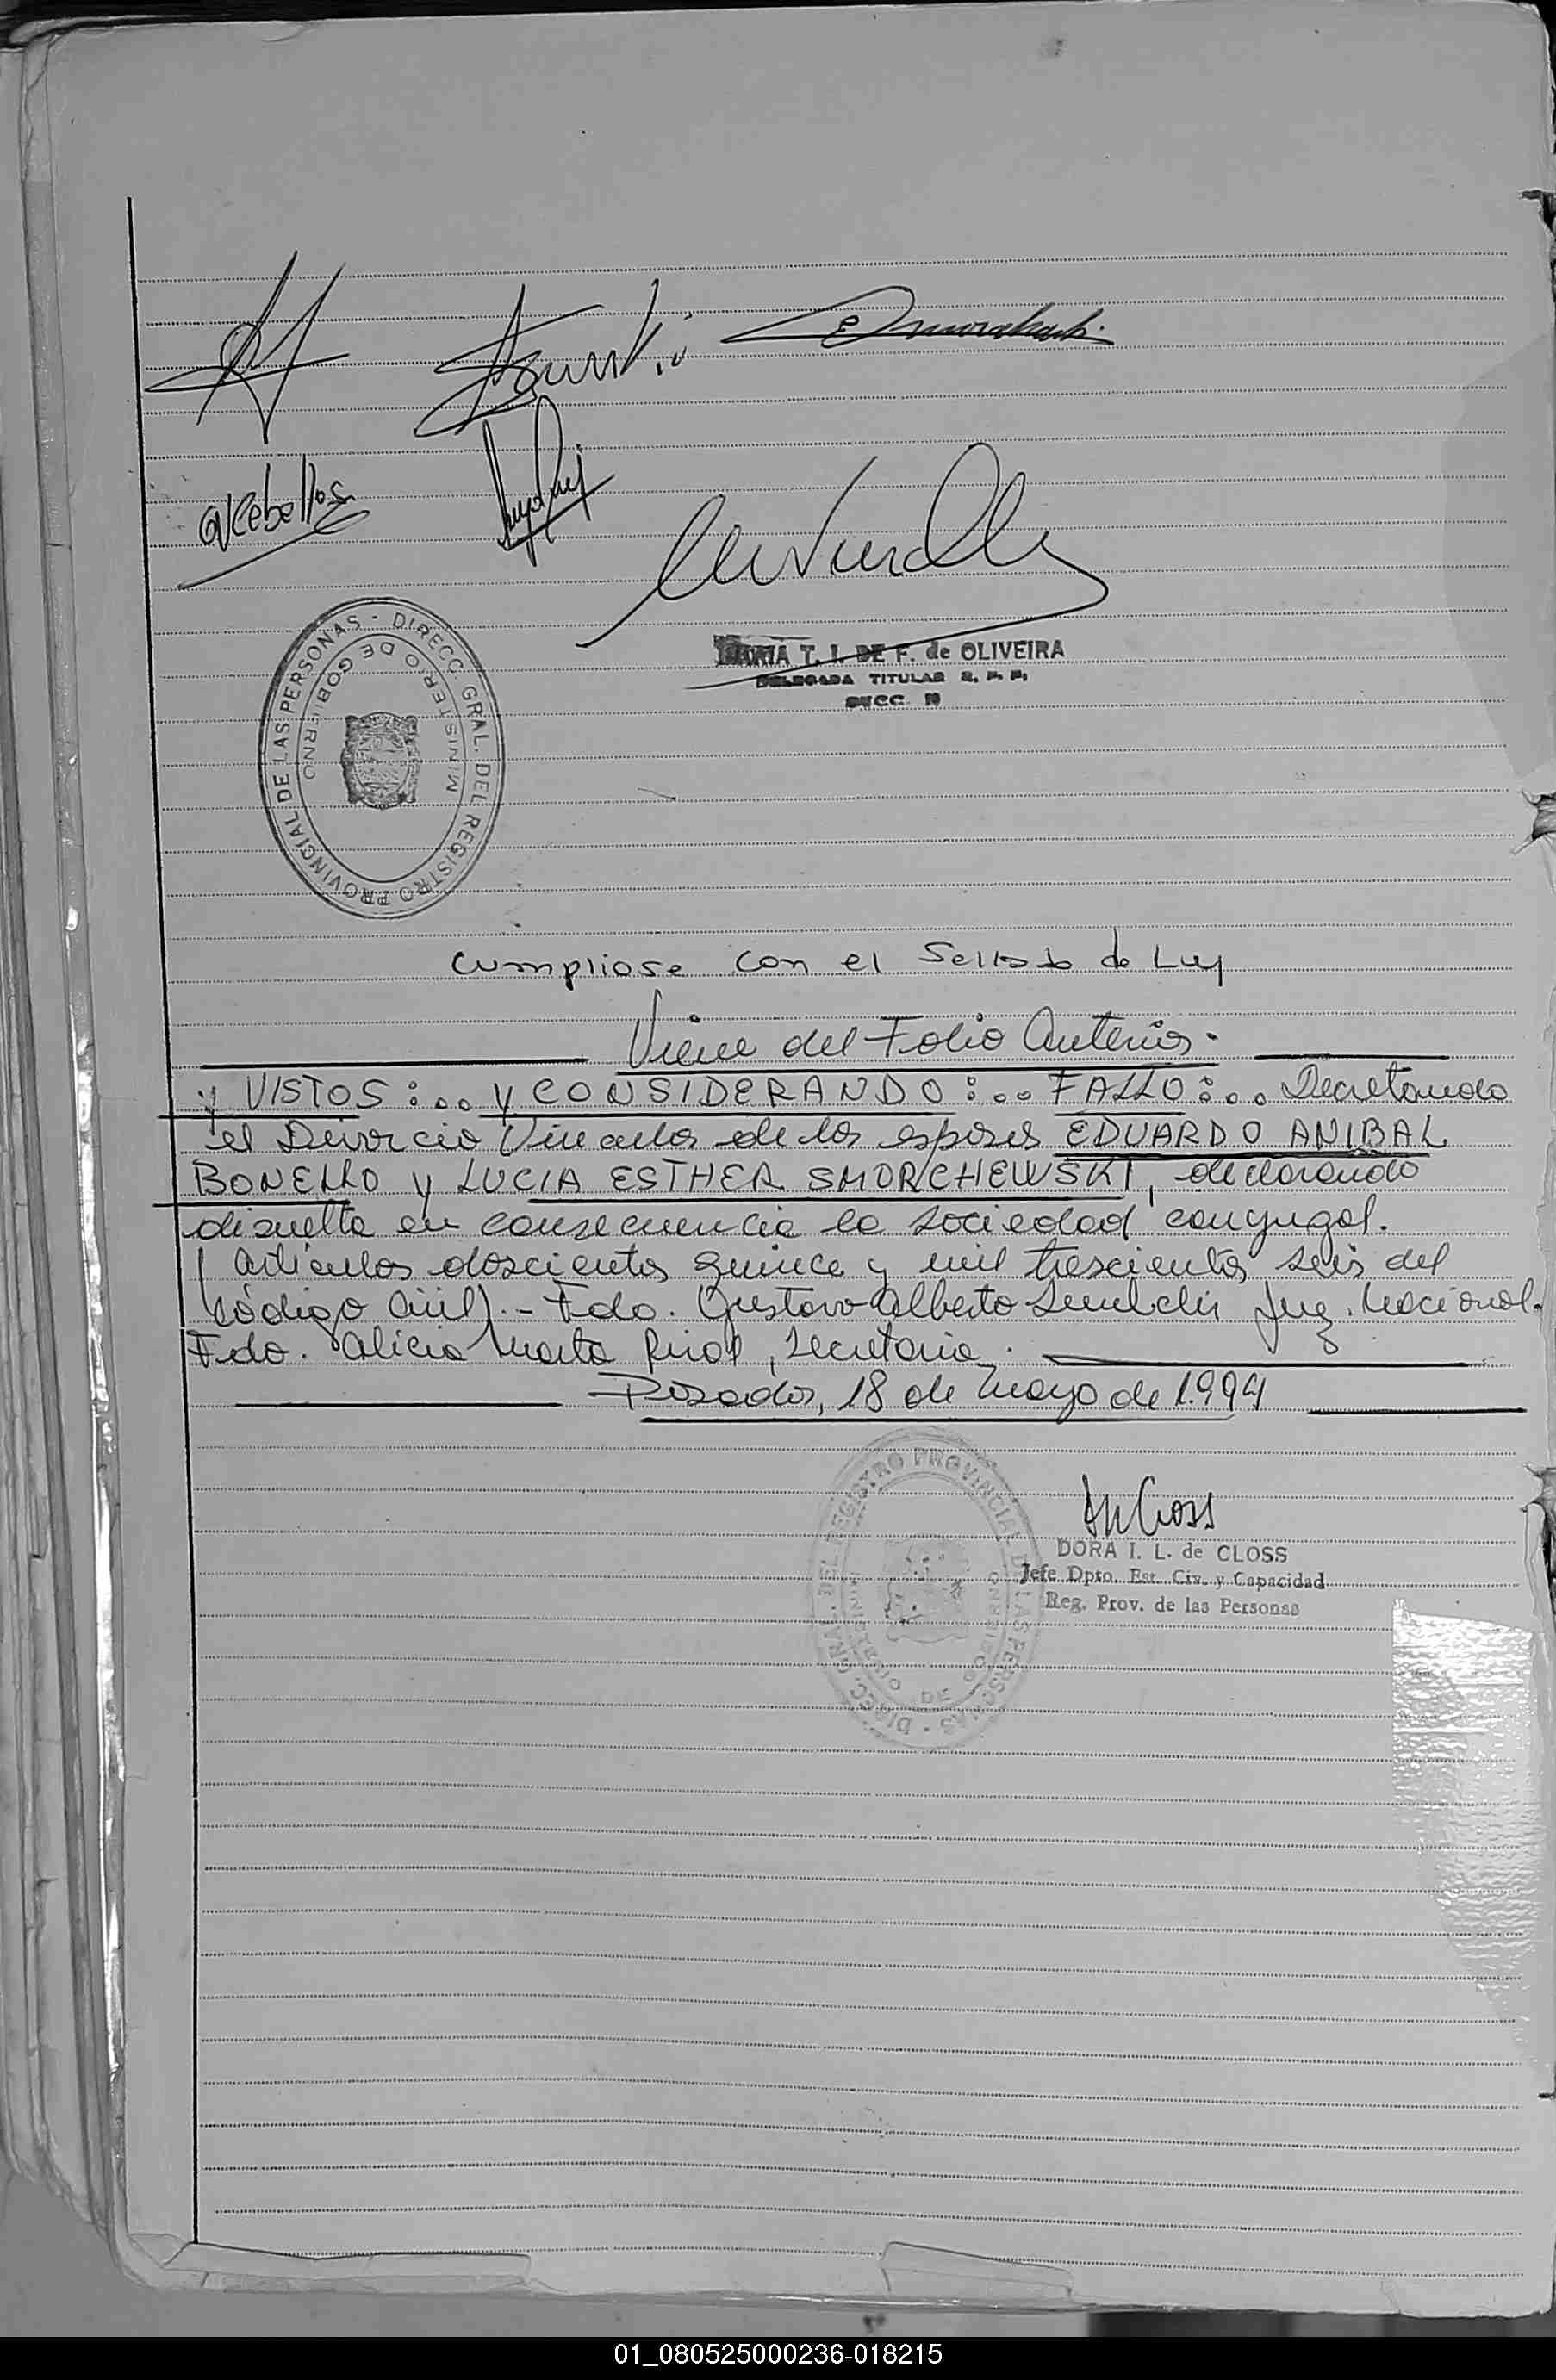 QVCeballos
MARIA T. I. DE F. de OLIVEIRA
DELEGADA TITULAR R. P. P.
SECC.
DIRECC. GRAL. DEL REGISTRO PROVINCIAL DE LAS PERSONAS -
MINISTERIO DE GOBIERNO
Cumpliose con el Sellado de Ley
Viene del Folio Anterior.
y VISTOS:... y CONSIDERANDO:... FALLO:... Decretando
el Divorcio Vincular de los esposos EDUARDO ANIBAL
BONELLO y LUCIA ESTHER SMORCHEWSKI, declarando
disuelta en consecuencia la sociedad conyugal.
(Artículos doscientos quince y mil trescientos seis del
Código Civil).- Fdo. Gustavo Alberto Juez. Nacional.
Fdo. Alicia Marta, Secretaria.
Posadas, 18 de Mayo de 1.994
DORA I. L. de CLOSS
Jefe Dpto. Est. Civ. y Capacidad
Reg. Prov. de las Personas
DIRECC. GRAL. DEL REGISTRO PROVINCIAL DE LAS PERSONAS -
MINISTERIO DE GOBIERNO
01_080525000236-018215